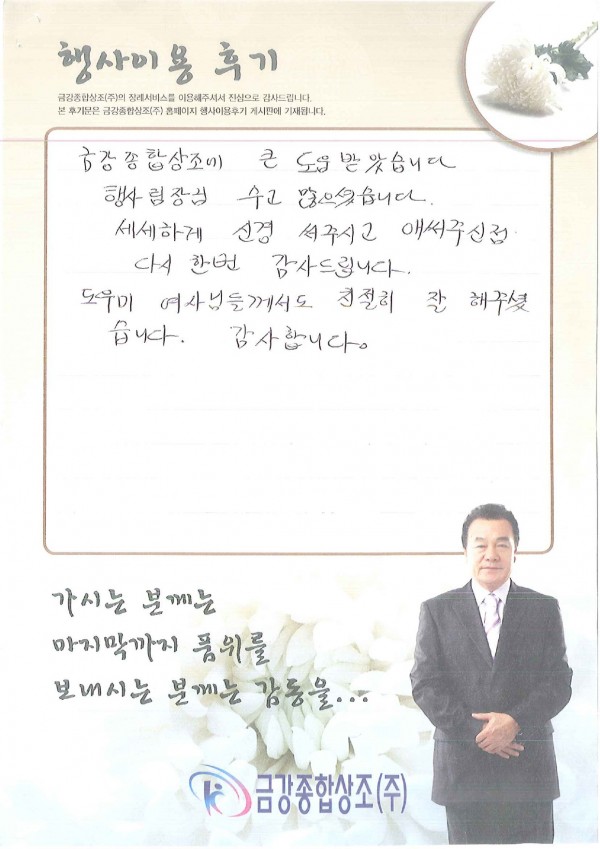 행사이용 후기
금강종합상조(주)의 장례서비스를 이용해주셔서 진심으로 감사드립니다.
본 후기문은 금강종합상조(주) 홈페이지 행사이용후기 게시판에 기재됩니다.
금강종합상조에 큰 도움 받았습니다
행사팀장님 수고 많으셨습니다.
세세하게 신경 써주시고 애써주신점
다시 한번 감사드립니다.
도우미 여사님들께서도 친절히 잘 해주셨
습니다. 감사합니다.
가시는 분께는
마지막까지 품위를
보내시는 분께는 감동을...
금강종합상조(주)